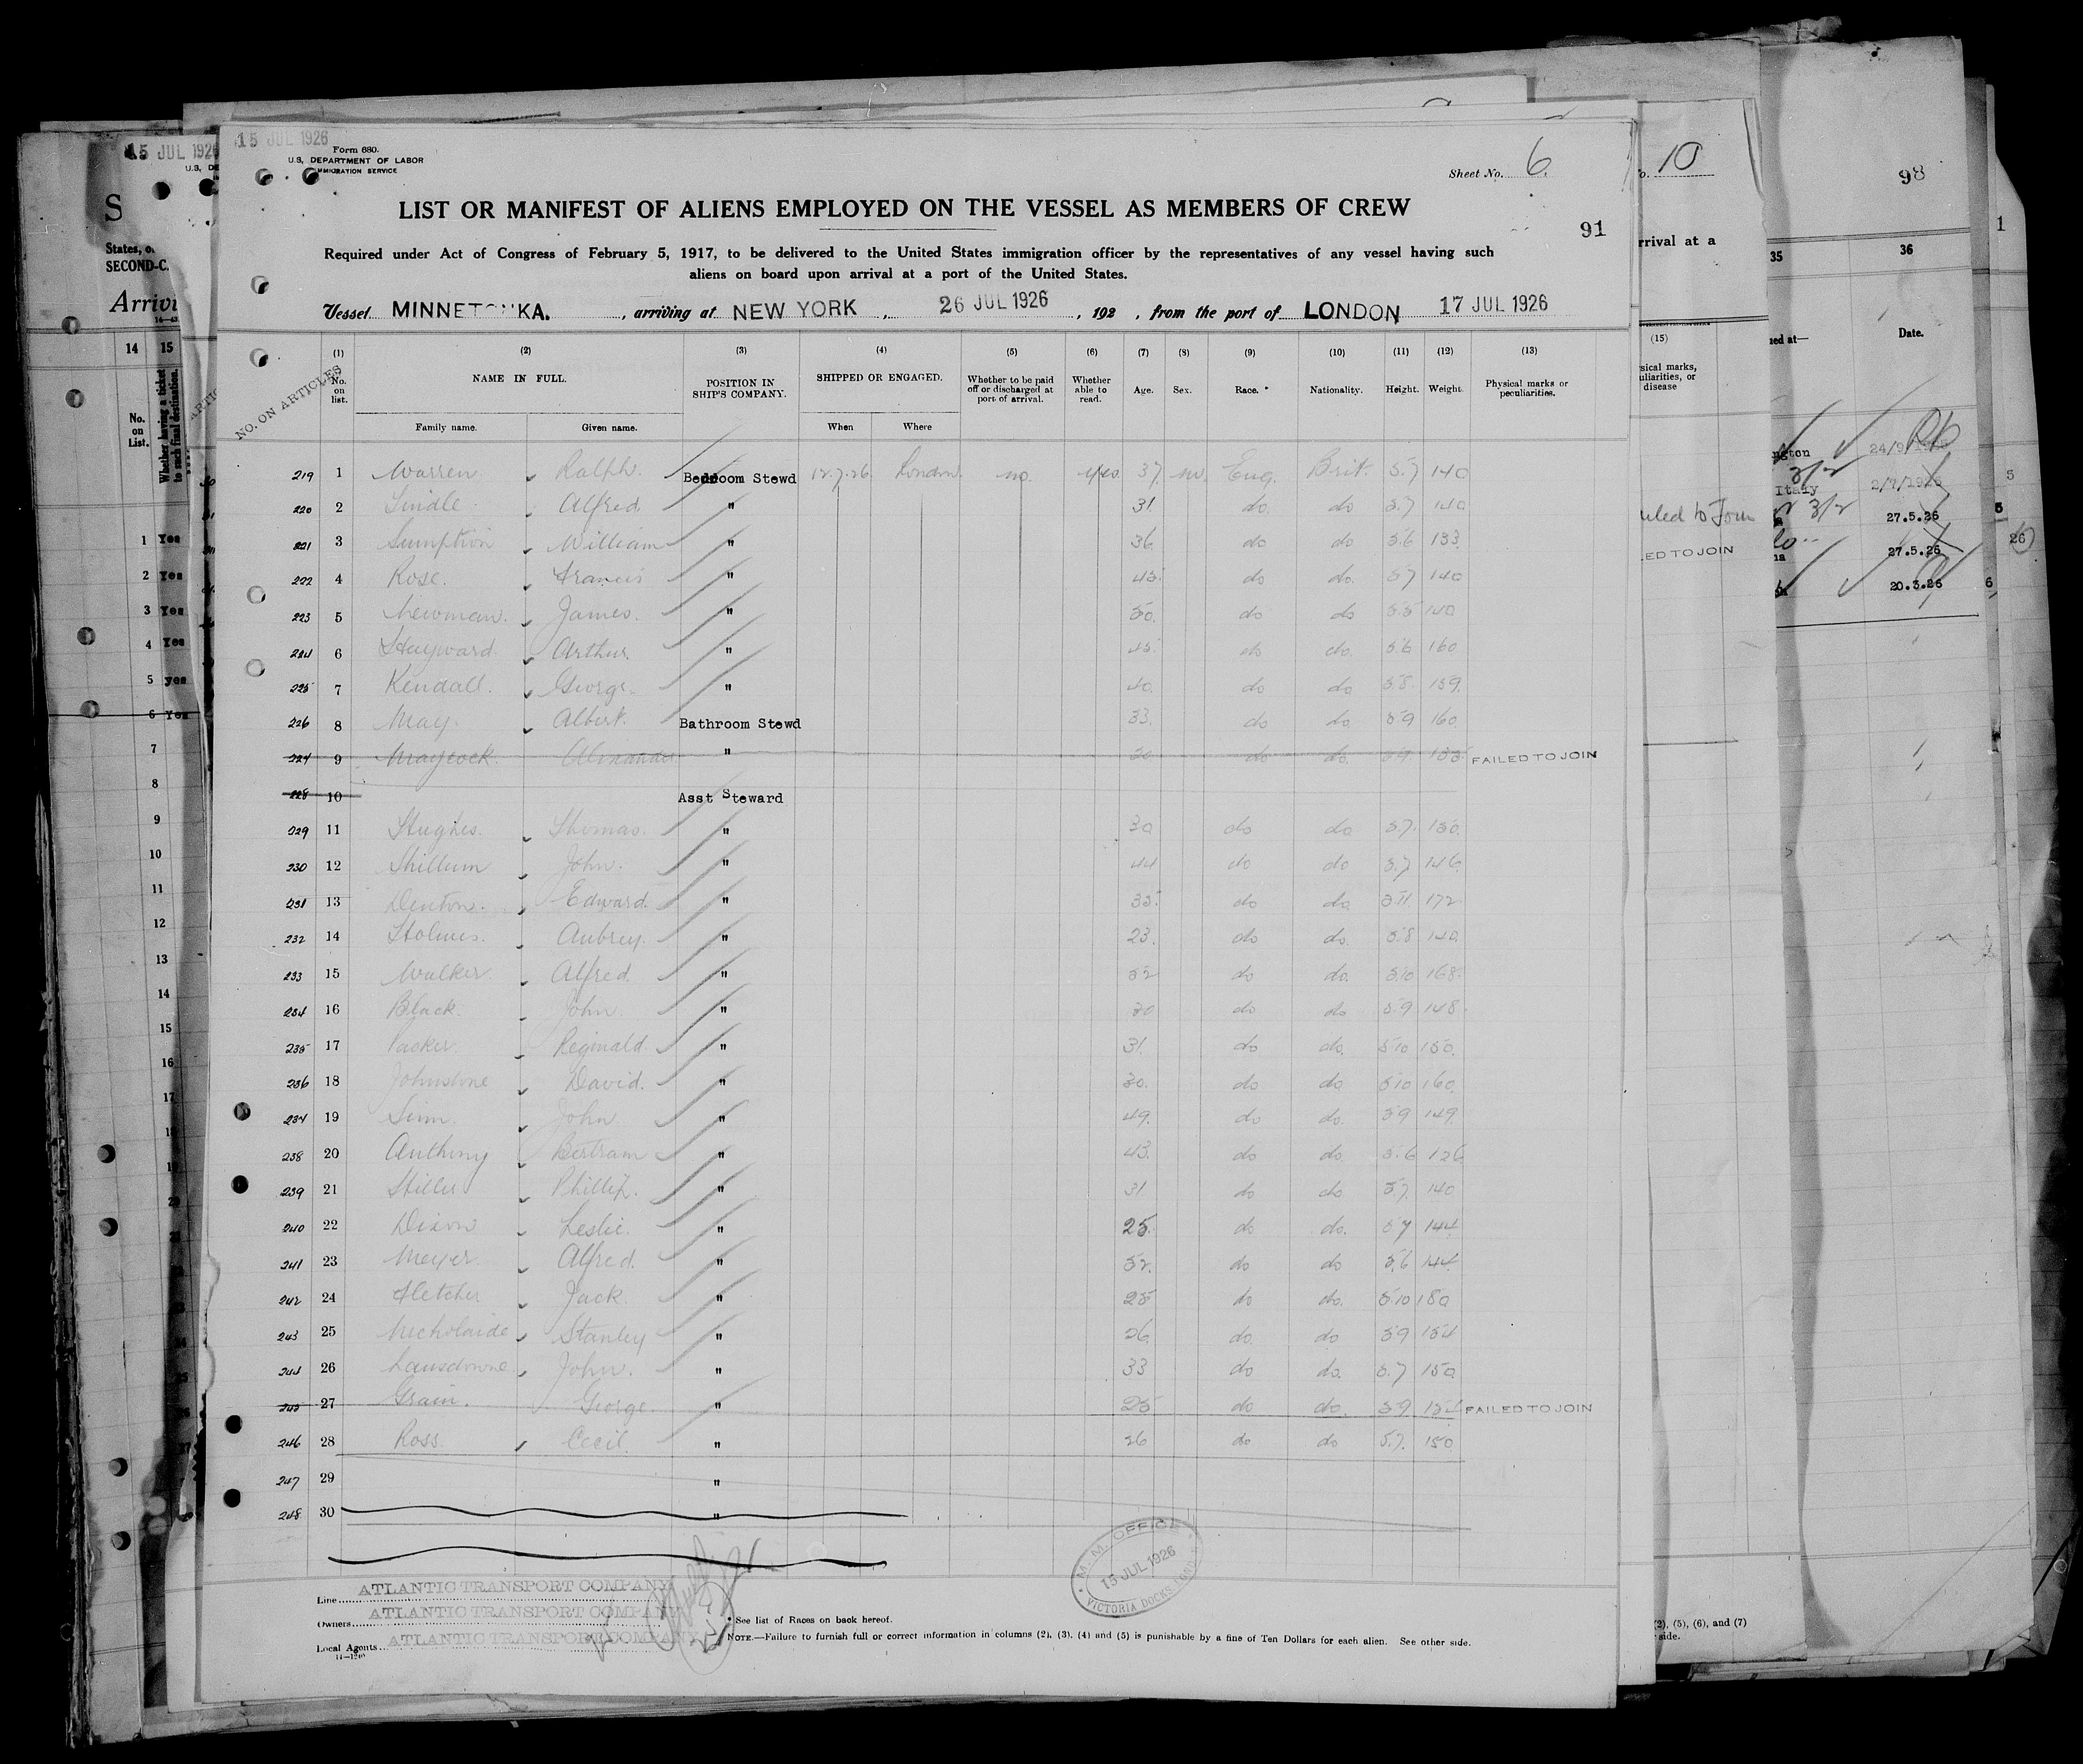 15 JUL 1926
Form 680.
U.S. DEPARTMENT OF LABOR
IMMIGRATION SERVICE
Sheet No. 6.
LIST OR MANIFEST OF ALIENS EMPLOYED ON THE VESSEL AS MEMBERS OF CREW
91
Required under Act of Congress of February 5, 1917, to be delivered to the United States immigration officer by the representatives of any vessel having such
aliens on board upon arrival at a port of the United States.
Vessel MINNETONKA. , arriving at NEW YORK , 26 JUL 1926 , 192 , from the port of LONDON 17 JUL 1926
NO. ON ARTICLES
(1) (2) (3) (4) (5) (6) (7) (8) (9) (10) (11) (12) (13)
No. on list. NAME IN FULL. POSITION IN SHIP'S COMPANY. SHIPPED OR ENGAGED. Whether to be paid off or discharged at port of arrival. Whether able to read. Age. Sex. Race.* Nationality. Height. Weight. Physical marks or peculiarities.
Family name. Given name. When Where
219 1 Warren Ralph. Bedroom Stewd 12.7.26 London. no. yes. 37 m. Eng. Brit. 5.7 140
220 2 Alfred " 31. do. do 5.7 140
221 3 Sumption William " 36 do do 5.6 133
222 4 Rose. Francis " 45. do do. 5.7 140
223 5 Newman. James. " 50. do do 5.5 140
224 6 Hayward. Arthur. " 45. do do. 5.6 160
225 7 Kendall. George. " 40. do do 5.8. 159.
226 8 May. Albert. Bathroom Stewd 33. do do 5.9 160
227 9 Maycock. " do do. 5.9. FAILED TO JOIN
228 10 Asst Steward
229 11 Hughes. Thomas. " 30 do do 5.7. 150.
230 12 Shillum John. " 44 do do 5.7 146.
231 13 Denton. Edward. " 35. do do 5.11. 172.
232 14 Holmes. Aubrey. " 23. do do. 5.8 140.
233 15 Walker. Alfred. " 52 do do. 5.10 168.
234 16 Black. John. " 30 do do 5.9 148.
235 17 Packer Reginald. " 31. do do. 5.10 150.
236 18 Johnstone David. " 30. do do 5.10 160.
237 19 John " 49. do do. 5.9 149.
238 20 Anthony Bertram " 43. do do. 5.6 126
239 21 Phillip. " 31. do do. 5.7. 140
240 22 Dixon Leslie. " 25. do do. 5.7 144
241 23 Meyer. Alfred. " 52. do do 5.6 144
242 24 Fletcher Jack. " 25 do do. 5.10 180
243 25 Stanley " 26. do do 5.9 154
244 26 Lansdowne. John. " 33 do do. 5.7 150
245 27 Grain. George. " 25 do do. 5.9. FAILED TO JOIN
246 28 Ross. Cecil. " 26 do do 5.7. 150
247 29 "
248 30 "
M.M. OFFICE
15 JUL 1926
VICTORIA DOCKS
Line ATLANTIC TRANSPORT COMPANY
Owners ATLANTIC TRANSPORT COMPANY
Local Agents ATLANTIC TRANSPORT COMPANY
14—1240
* See list of Races on back hereof.
NOTE.—Failure to furnish full or correct information in columns (2), (3), (4) and (5) is punishable by a fine of Ten Dollars for each alien. See other side.
15 JUL 1926
S
States, o
SECOND-C.
Arrivi
14 15
No. on List.
Whether having a ticket to such final destination.
1 Yes
2 Yes
3 Yes
4 Yes
5 yes
6 Yes
7
8
9
10
11
12
13
14
15
16
17
10
rrival at a
(15)
sical marks,
uliarities, or
disease
to Join
ED TO JOIN
(2), (5), (6), and (7)
side.
98
35 36
ed at— Date.
ngton
Italy 2/7/
27.5.26
27.5.26
20.3.26
1
5
5
26
6